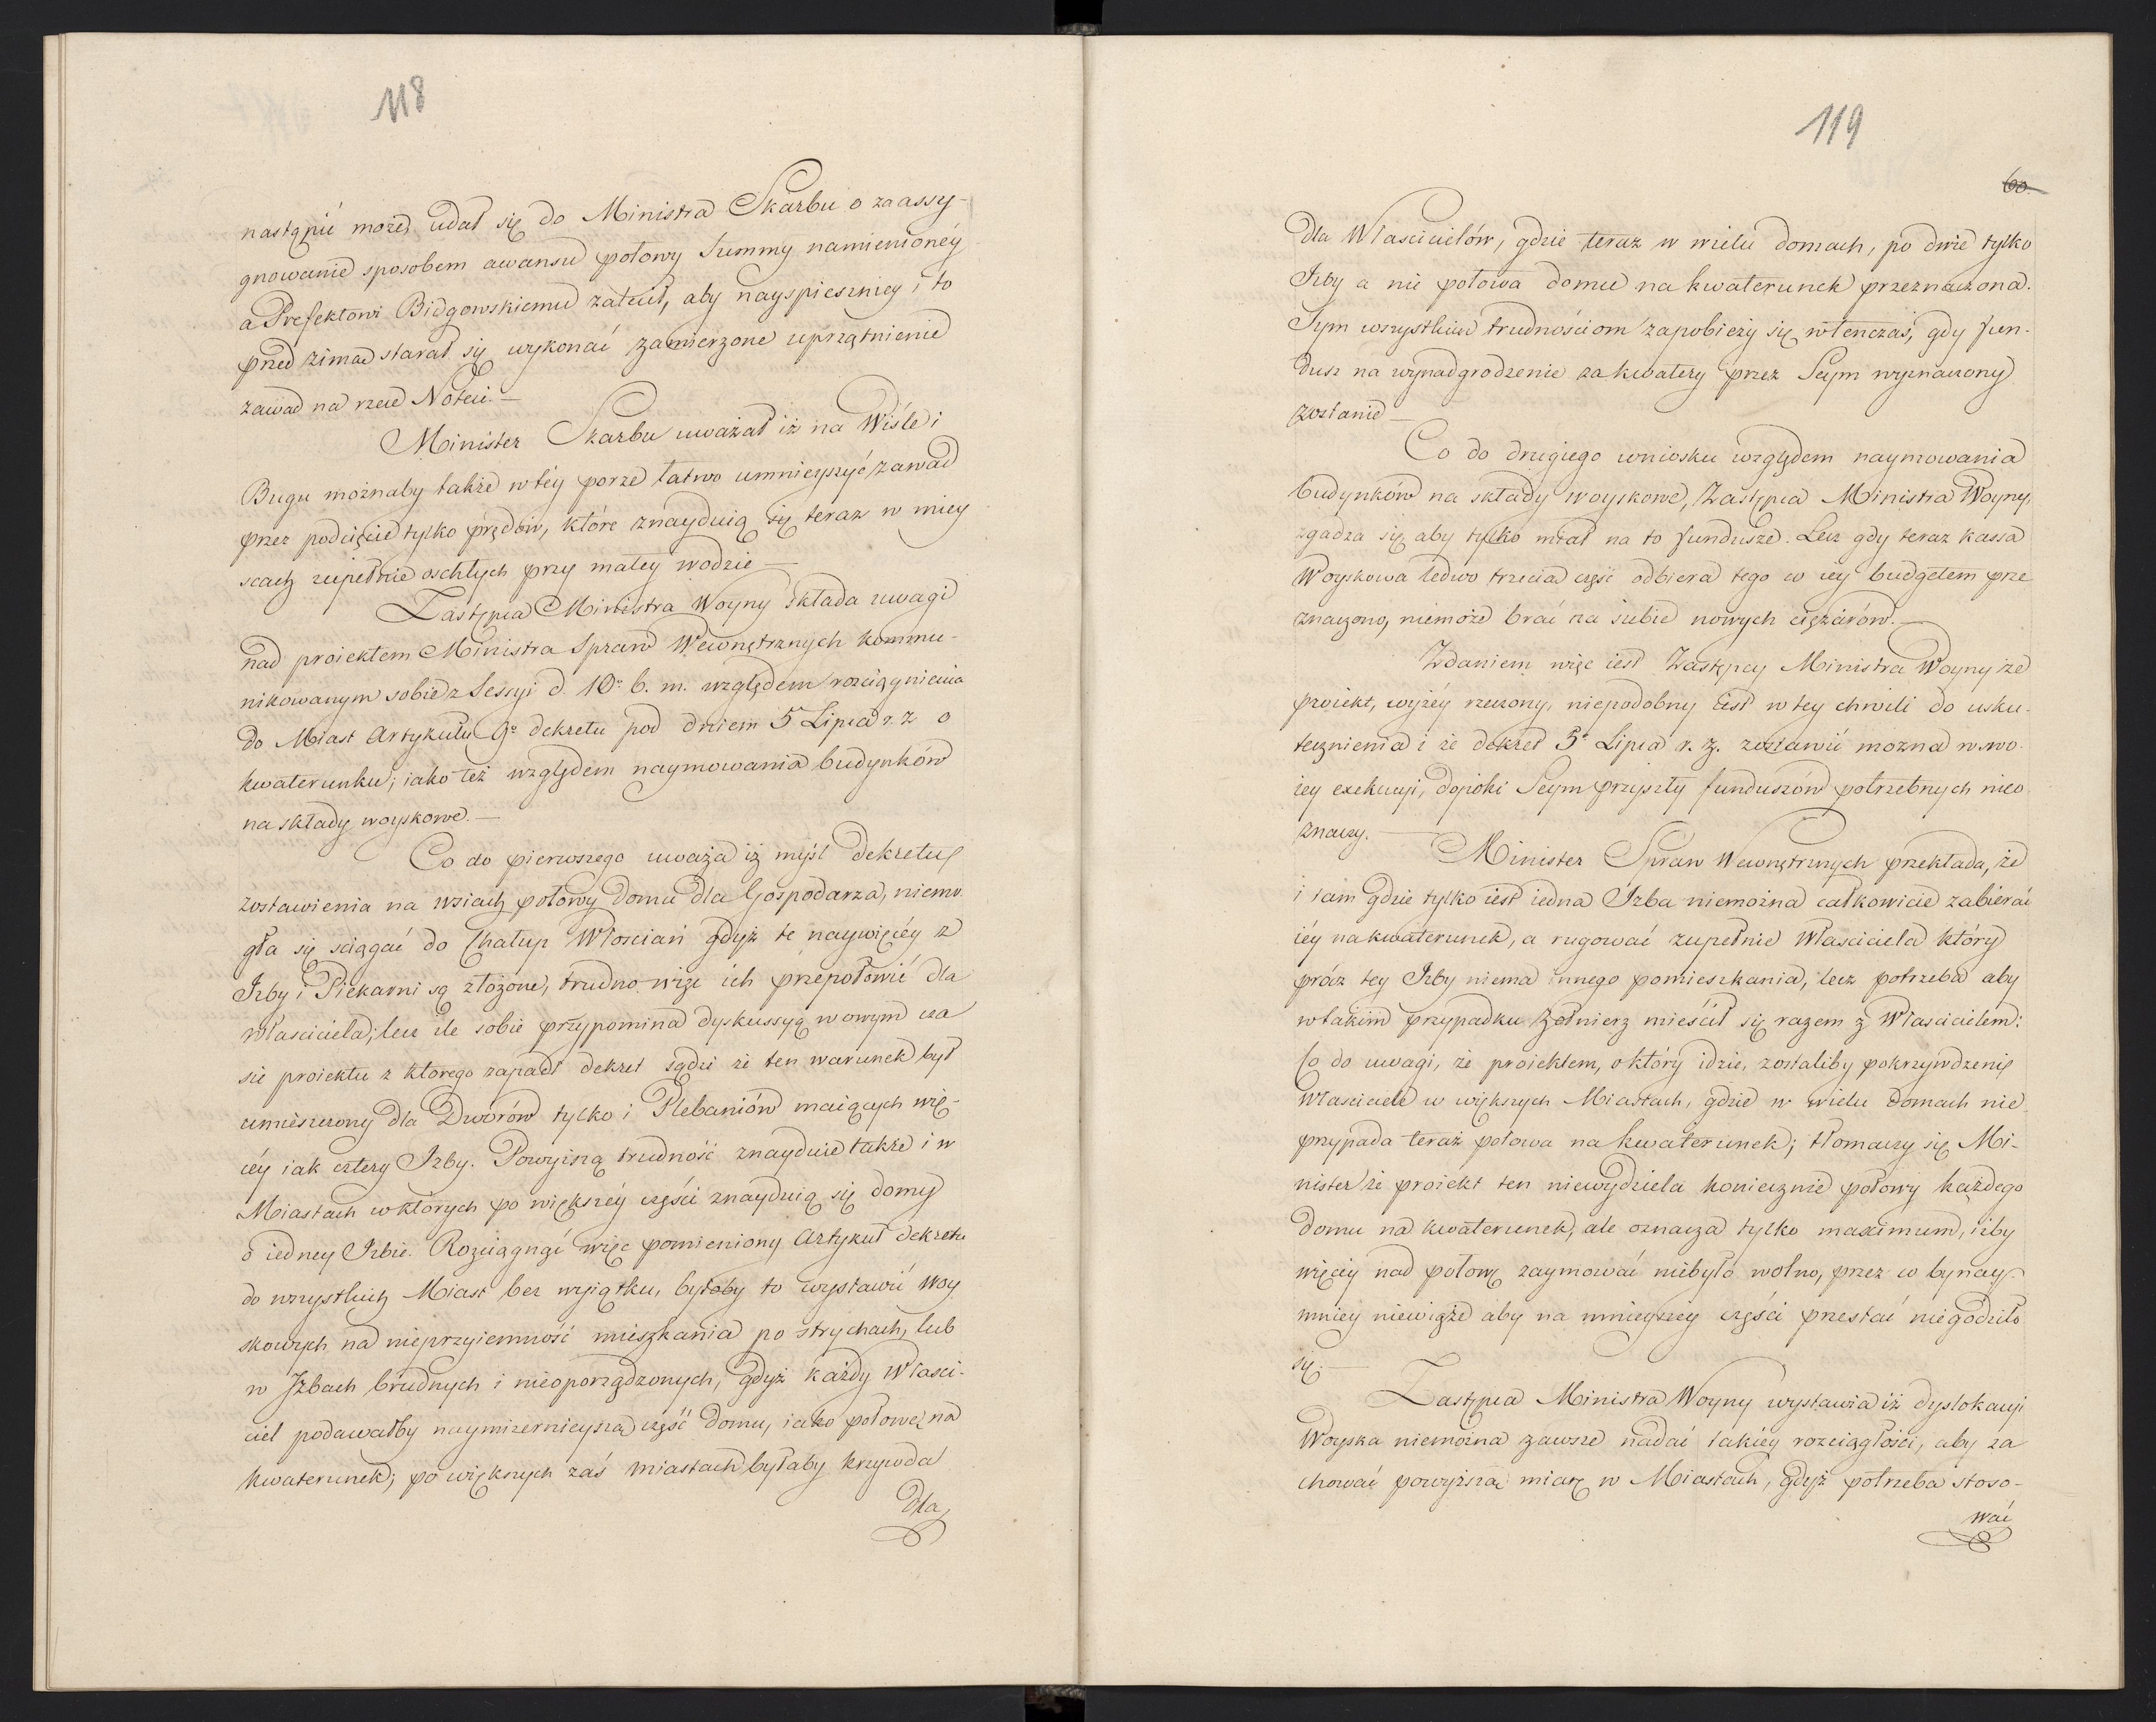 118
nastąpić może, udał się do Ministra Skarbu o zaassy-
gnowanie sposobem awansu połowy Summy namienionéy
a Prefektowi Bidgowskiemu zalecił, aby nayspieszniey i to
przed zimą starał się wykonać zamierzone uprzątnienie
zawad na rzece Noteci. —
Minister Skarbu uważał iż na Wiśle i
Bugu możnaby także w téy porze łatwo umnieyszyć zawad
przez podcięcie tylko prędów, które znayduią się teraz w miey
scach zupełnie oschłych przy małey wodzie —
Zastępca Ministra Woyny składa uwagi
nad proiektem Ministra Spraw Wewnętrznych kommu-
nikowanym sobie z Sessyi d. 10º b. m. względem rozciągnienia
do Miast Artykułu 9º dekretu pod dniem 5º Lipca r. z. o
kwaterunku; iako też względem naymowania budynków
na składy woyskowe. —
Co do pierwszego uważa iż myśl dekretu
zostawienia na wsiach połowy domu dla Gospodarza, niemo
gła się sciągać do Chałup Włoscian gdyż te naywięcéy z
Izby i Piekarni są złożone, trudno więc ich przepołowić dla
właściciela; lecz ile sobie przypomina dyskussyą w owym cza
sie proiektu z ktorego zapadł dekret sądzi że ten warunek był
umieszczony dla Dworów tylko i Plebaniów maiących wię-
céy iak cztery Izby. Powyższą trudność znayduie także i w
Miastach w których po większéy części znayduią się domy
o iedney Izbie. Rozciągnąć więc pomieniony Artykuł dekretu
do wszystkich Miast bez wyiątku, byłoby to wystawić woy
skowych na nieprzyiemność mieszkania po strychach, lub
w Izbach brudnych i nieoporządzonych, gdyż każdy Właści-
ciel podawałby naymizernieyszą część domu, iako połowę na
kwaterunek; po większych zaś miastach byłaby krzywda
dla
119
60.
dla Właścicielów, gdzie teraz w wielu domach, po dwie tylko
Izby a nie połowa domu na kwaterunek przeznaczona.
Tym wszystkim trudnościom zapobieży się wtenczas, gdy fun-
dusz na wynadgrodzenie za kwatery przez Seym wyznaczony
zostanie —
Co do drugiego wniosku względem naymowania
budynków na składy woyskowe, Zastępca Ministra Woyny
zgadza się aby tylko miał na to fundusze. Lecz gdy teraz kassa
Woyskowa ledwo trzecią część odbiera tego co iey budgetem prze
znaczono, niemoże brać na siebie nowych ciężarów. —
Zdaniem więc iest Zastępcy Ministra Woyny że
proiekt, wyżéy rzeczony, niepodobny iest w tey chwili do usku-
tecznienia i że dekret 5º Lipca r. z. zostawić można w swo-
iey exekucyi, dopóki Seym przyszły funduszów potrzebnych nieo
znaczy. —
Minister Spraw Wewnętrznych przekłada, że
i tam gdzie tylko iest iedna Izba niemożna całkowicie zabierać
iéy na kwaterunek, a rugować zupełnie Właściciela który
prócz tey Izby niema innego pomieszkania, lecz potrzeba aby
w takim przypadku żołnierz mieścił się razem z Właścicielem:
Co do uwagi, że proiektem, o który idzie, zostaliby pokrzywdzeni
Właściciele w większych Miastach, gdzie w wielu domach nie
przypada teraz połowa na kwaterunek; tłomaczy się Mi-
nister że proiekt ten niewydziela koniecznie połowy każdego
domu na kwaterunek, ale oznacza tylko maximum, iżby
więcéy nad połowę zaymować niebyło wolno, przez co bynay-
mniey niewiąże aby na mnieyszey części przestać niegodziło
się. —
Zastępca Ministra Woyny wystawia iż dyslokacyi
Woyska niemożna zawsze nadać takiéy rozciągłości, aby za
chować powyższą miarę w Miastach, gdyż potrzeba stoso-
wać